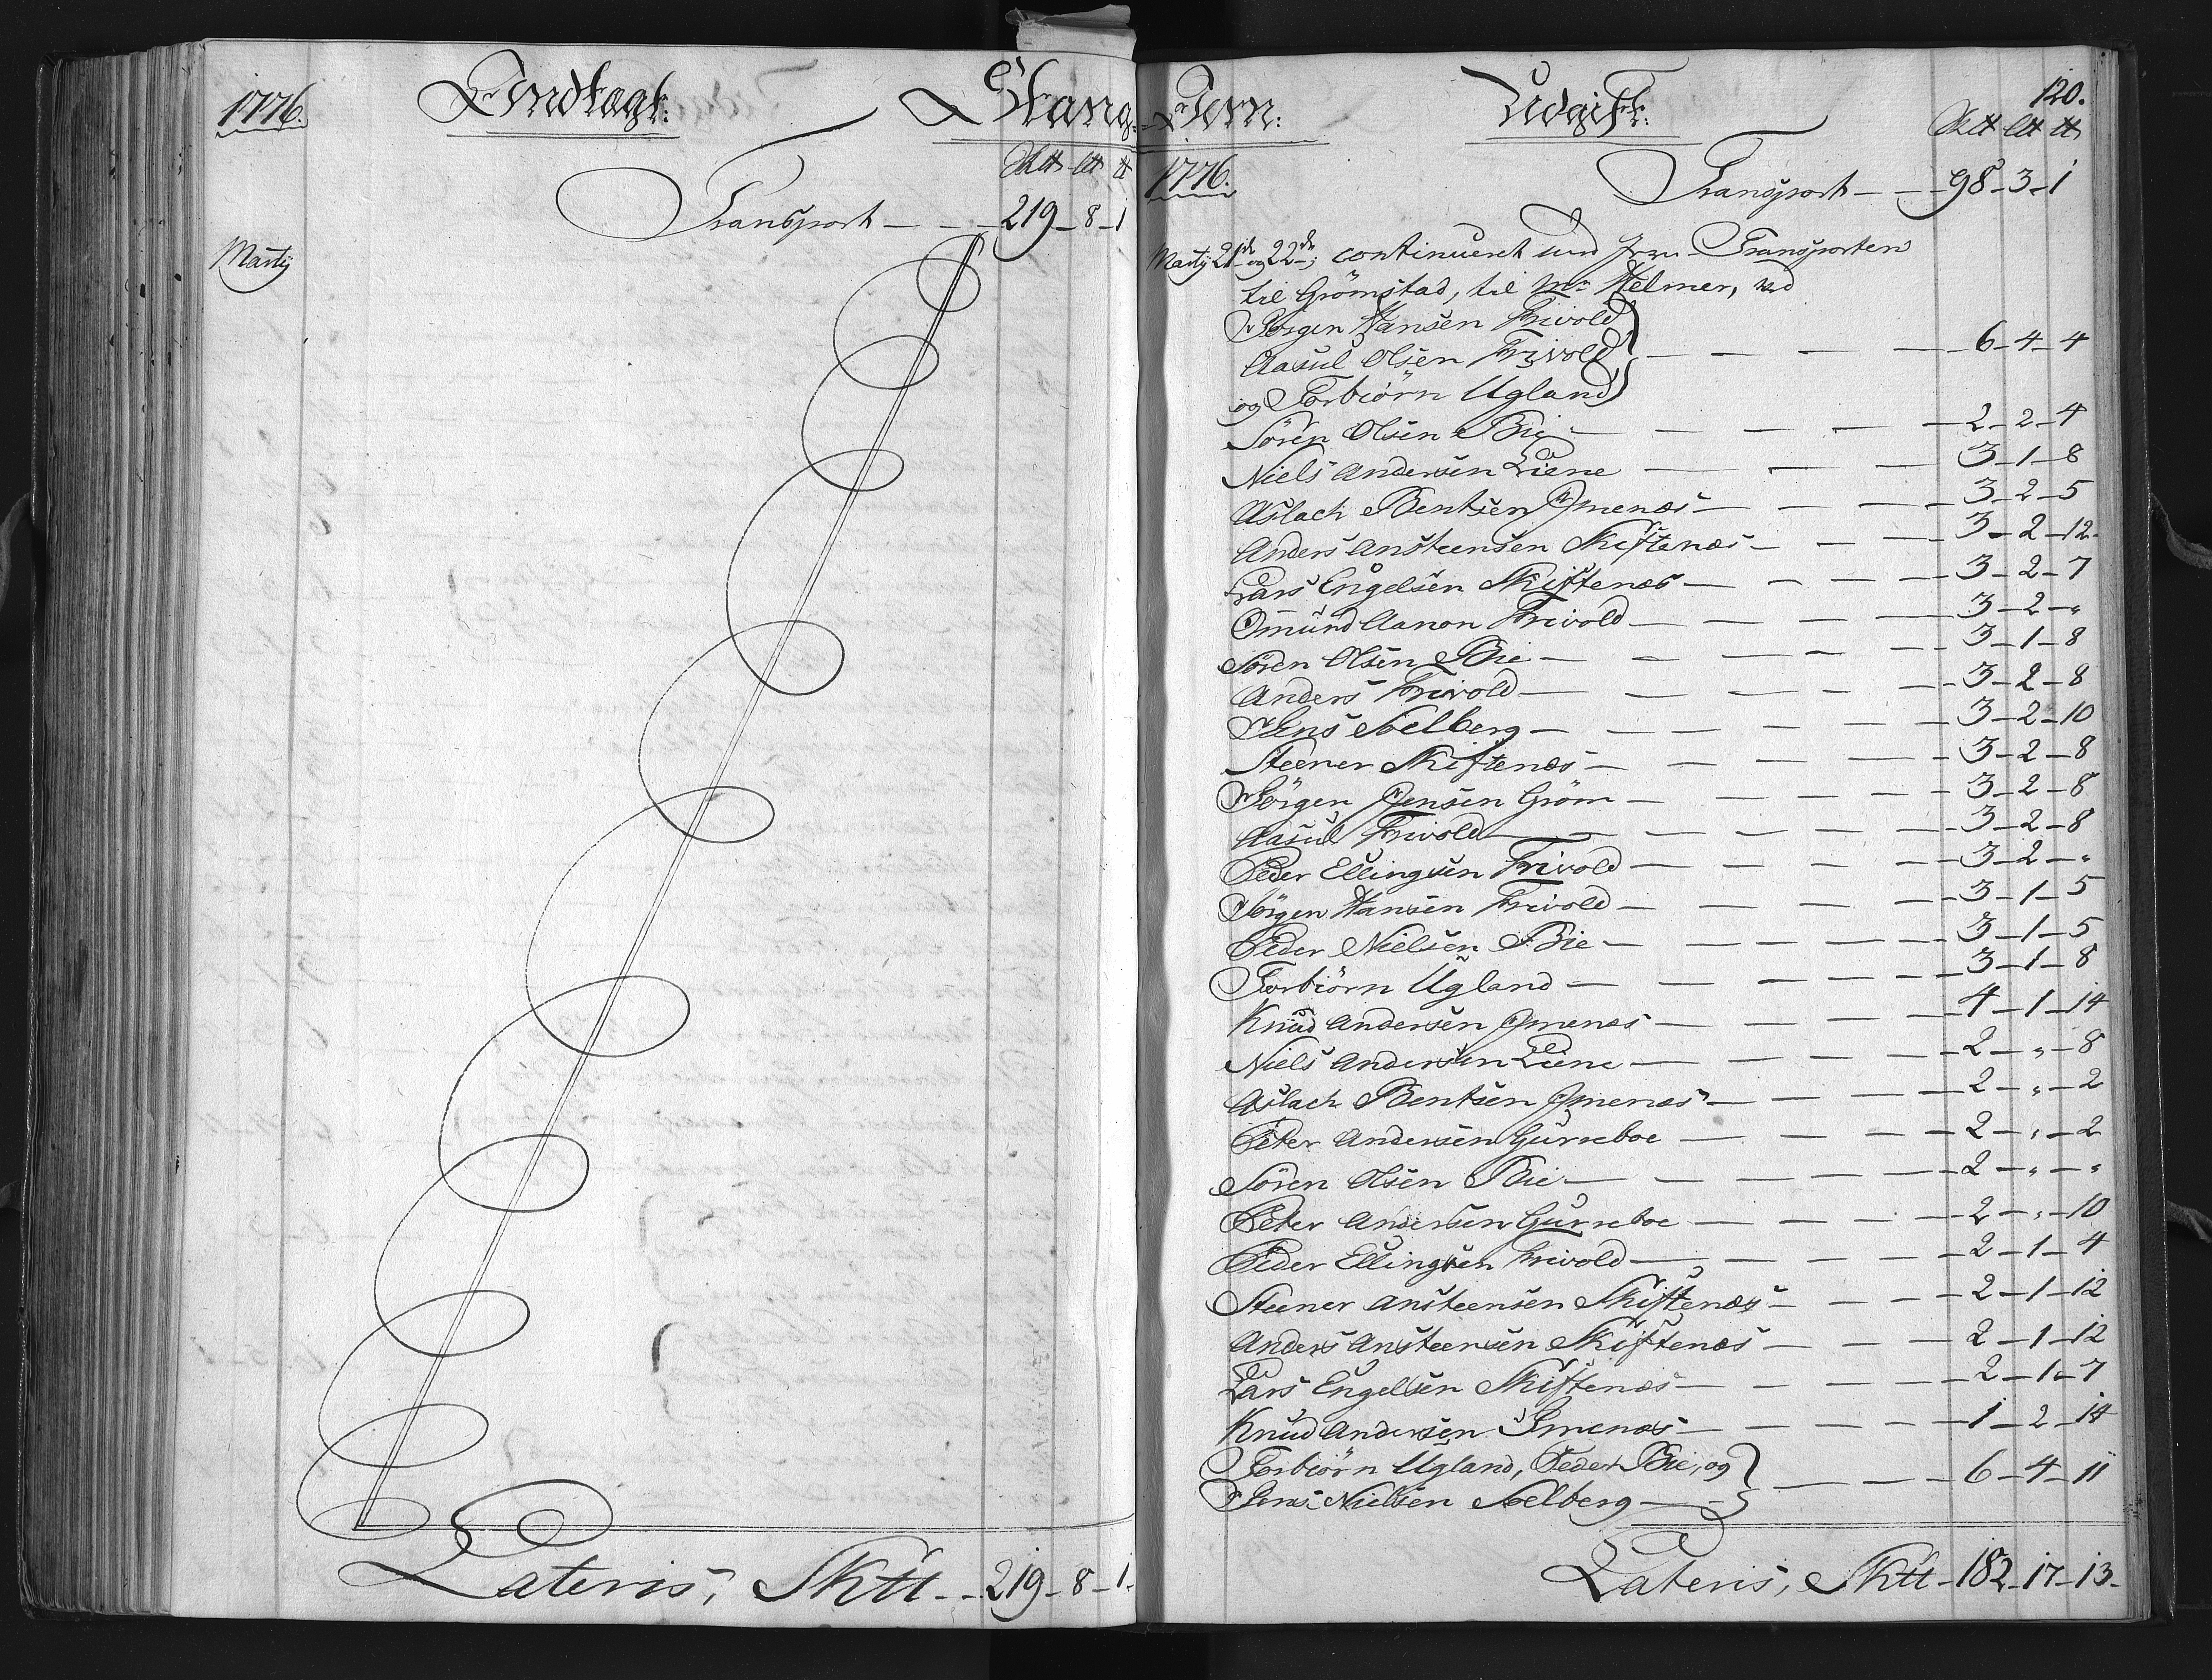 1776. Indtægt: Stang-
Sktt ltt tt
Transport - - - 219 - 8 - 1
Martij
Lateris, Sktt - - 219 - 8 - 1.
Jern: Udgift: 120.
Sktt ltt tt
1776. Transport - - - 98 - 3 - 1
Martij 21de og 22de, continueret med Jern-Transporten
til Grömstad, til Mr Helmer, ved
Jörgen Hansen Frivold
Aasul Olsen Frivold - - - - 6 - 4 - 4
og Torbiörn Ugland
Sören Olsen Bie - - - - 2 - 2 - 4
Niels Andersen Liene - - - 3 - 1 - 8
Aslach Bentsen Imenæs - - - - 3 - 2 - 5
Anders Ansteensen Skiftenæs - - - 3 - 2 - 12.
Lars Engelsen Skiftenæs - - - - 3 - 2 - 7
Omund Aanon Frivold - - - - 3 - 2 - "
Sören Olsen Bie - - - - - 3 - 1 - 8
Anders Frivold - - - - - 3 - 2 - 8
Jens Selberg - - - - - 3 - 2 - 10
Steener Skiftenæs - - - - - 3 - 2 - 8
Jörgen Jensen Gröm - - - - - 3 - 2 - 8
Aasul Frivold - - - - - 3 - 2 - 8
Peder Ellingsen Frivold - - - - - 3 - 2 - "
Jörgen Hansen Frivold - - - - - 3 - 1 - 5
Peder Nielsen Bie - - - - - 3 - 1 - 5
Torbiörn Ugland - - - - - 3 - 1 - 8
Knud Andersen Imenæs - - - - 4 - 1 - 14
Niels Andersen Liene - - - - 2 - " - 8
Aslach Bentsen Imenæs - - - - 2 - " - 2
Peter Andersen Gurreboe - - - - 2 - " - 2
Sören Olsen Bie - - - - - 2 - " - "
Peter Andersen Gurreboe - - - - 2 - " - 10
Peder Ellingsen Frivold - - - - 2 - 1 - 4
Steener Ansteensen Skiftenæs - - - 2 - 1 - 12
Anders Ansteensen Skiftenæs - - - 2 - 1 - 12
Lars Engelsen Skiftenæs - - - - 2 - 1 - 7
Knud Andersen Imenæs - - - - 1 - 2 - 14
Torbiörn Ugland, Peder Bie, og
Jens Nielsen Selberg - - - - 6 - 4 - 11
Lateris, Sktt - 182 - 17 - 13 -